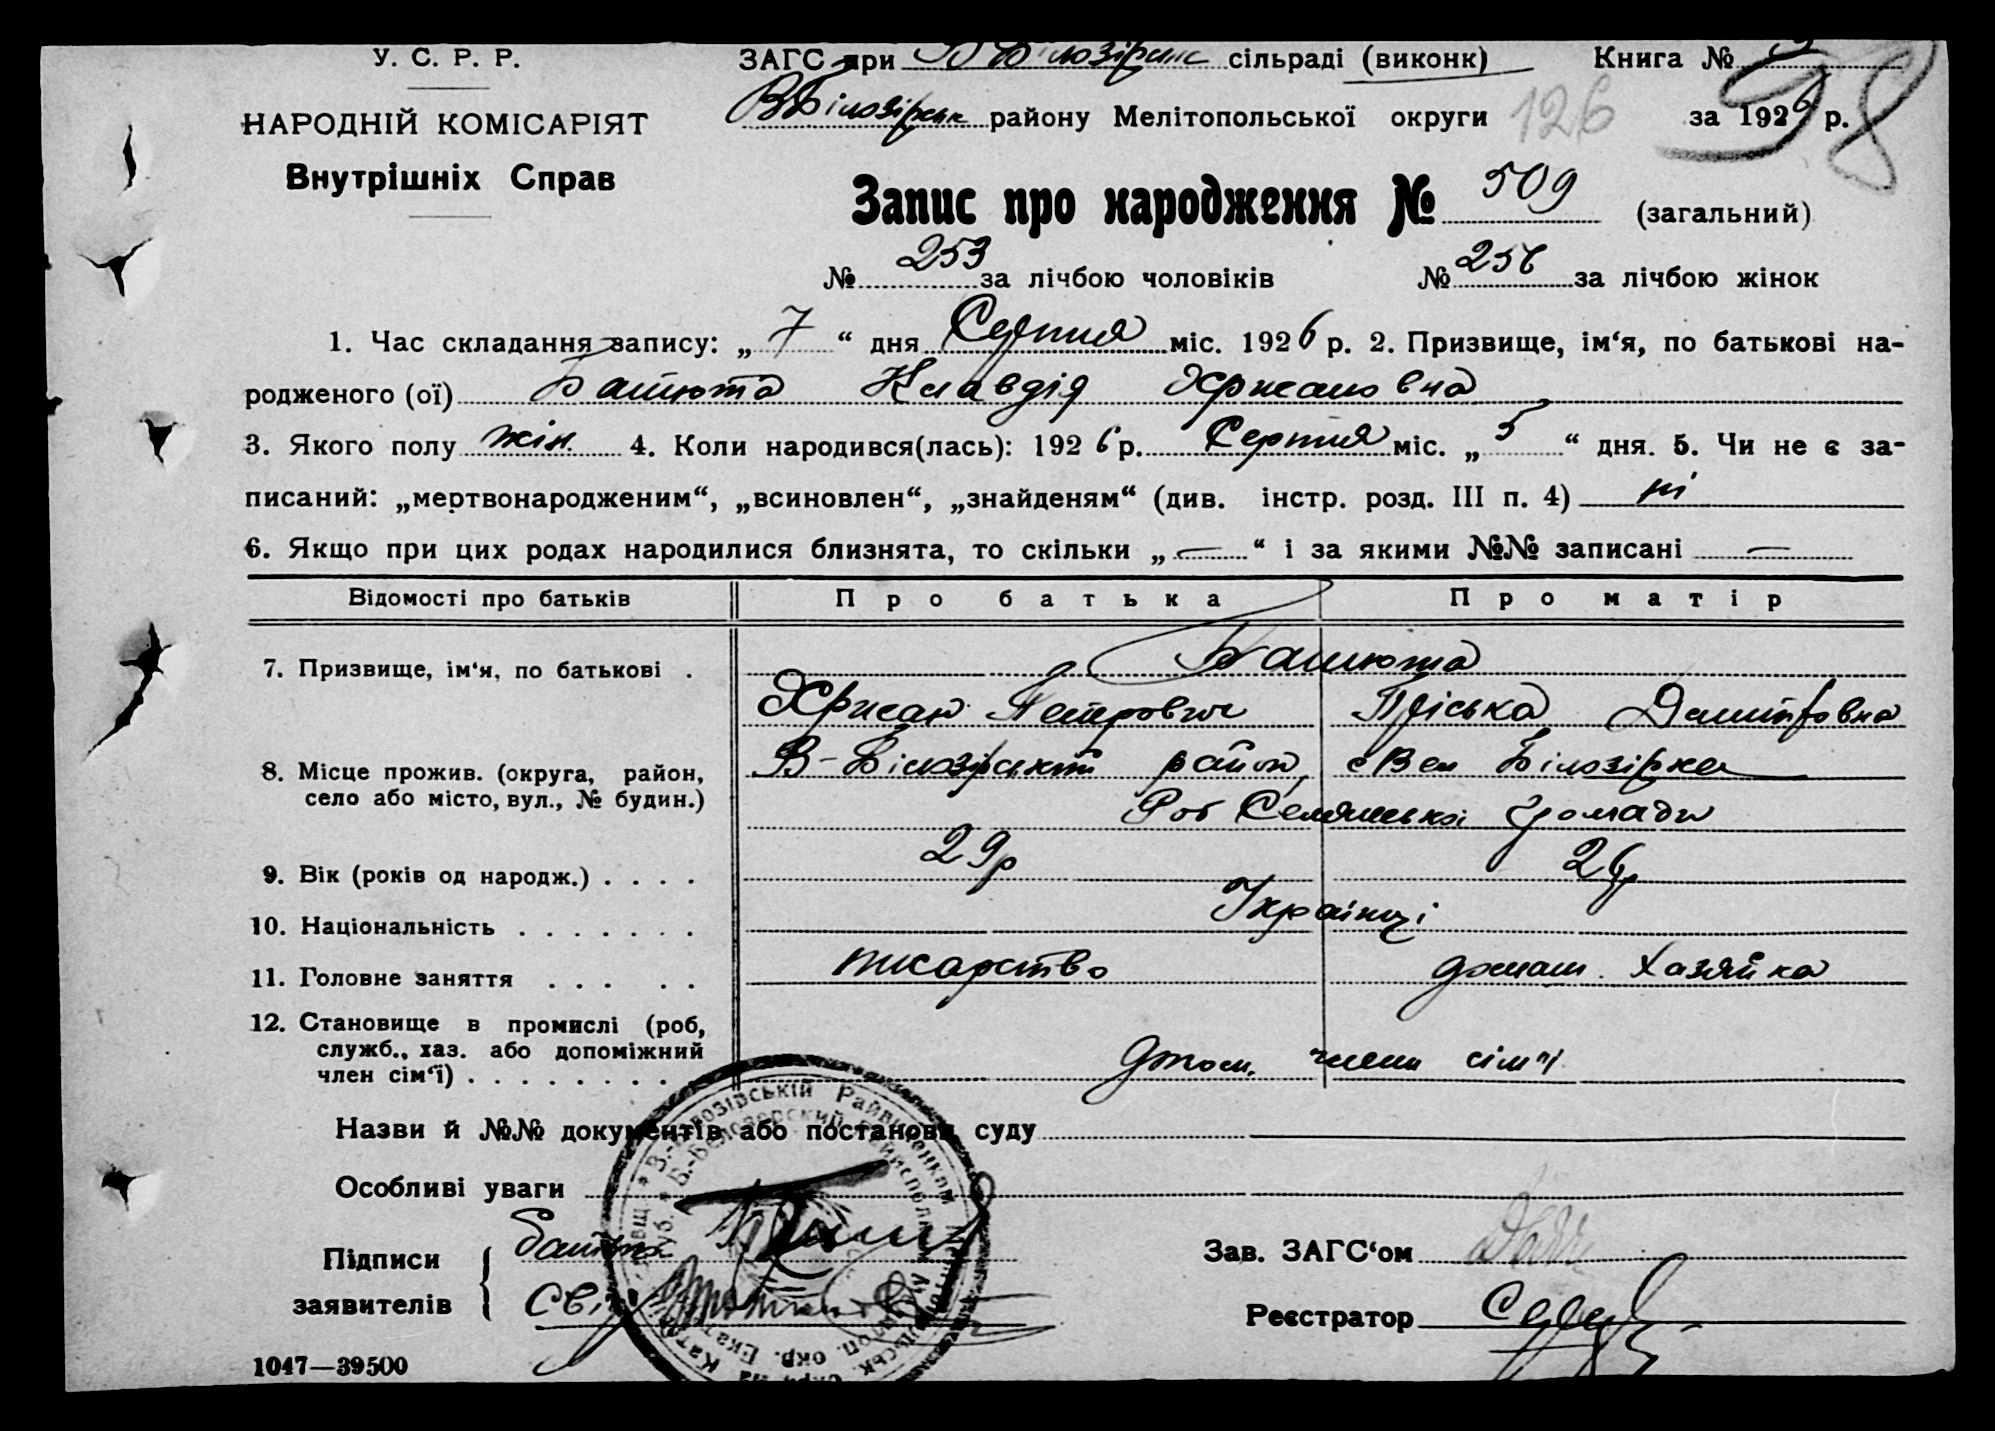 У. С. Р. Р.
НАРОДНІЙ КОМІСАРІЯТ
Внутрішніх Справ
ЗАГС при В Білозірськ сільраді (виконк) Книга №
ВБілозірськ району Мелітопольської округи 126 за 1926 р. 98
Запис про народження № 509 (загальний)
№ 253 за лічбою чоловіків № 256 за лічбою жінок
1. Час складання запису: „ 7 “ дня Серпня міс. 1926 р. 2. Призвище, ім‘я, по батькові на-
родженого (ої) Клавдія Хрисановна
3. Якого полу жін. 4. Коли народився(лась): 1926 р. Серпня міс. „ 5 “ дня. 5. Чи не є за-
писаний: „мертвонародженим“, „всиновлен“, „знайденям“ (див. інстр. розд. III п. 4) ні
6. Якщо при цих родах народилися близнята, то скільки „ — “ і за якими №№ записані —
Відомості про батьків Про батька Про матір
7. Призвище, ім‘я, по батькові .
Хрисан Петрович Пріська Дмитровна
8. Місце прожив. (округа, район, село або місто, вул., № будин.) В-Білозірський район, с Вел Білозірка
Роб Селянської громади
9. Вік (років од народж.) . . . . 29р 26р
10. Національність . . . . . . . Українці
11. Головне заняття . . . . . домаш. Хазяйка
12. Становище в промислі (роб,
служб., хаз. або допоміжний
член сім‘ї) . . . . . . . . члени сім'ї
Назви й №№ документів або постанови суду
Особливі уваги
Підписи
заявителів
Зав. ЗАГС‘ом
Реєстратор
1047—39500